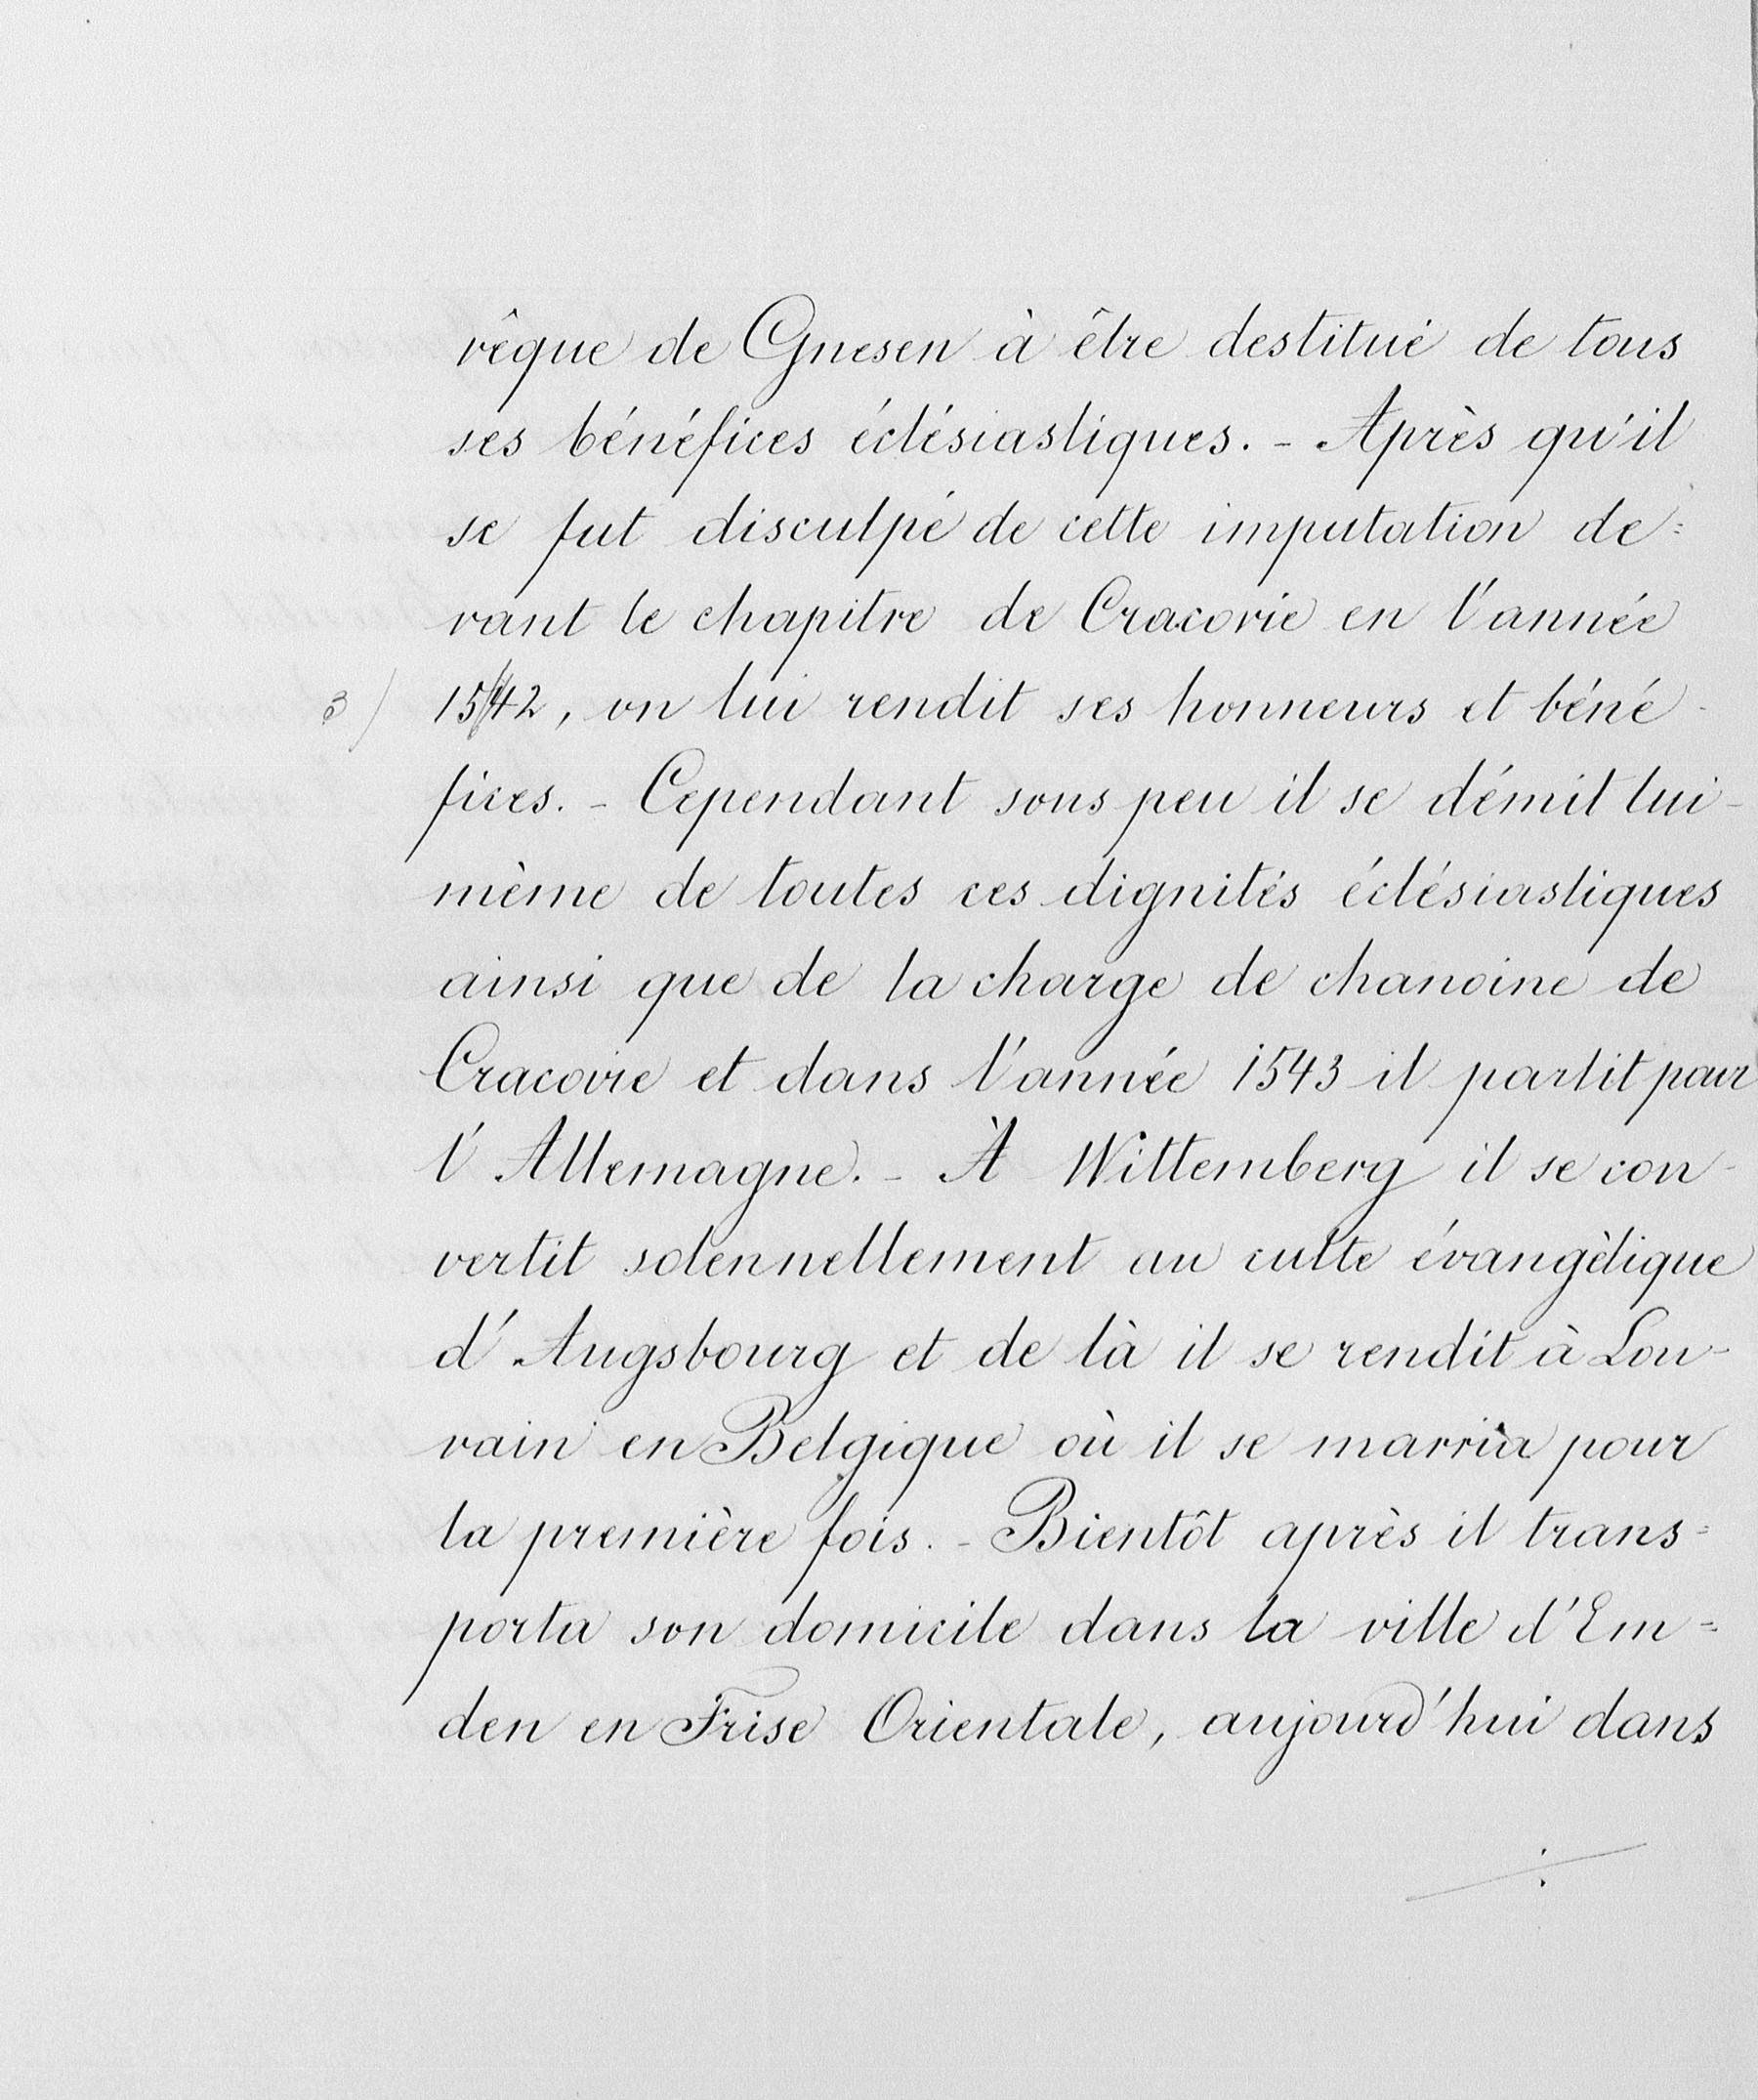 vêque de Gnesen à être destitué de tous
ses bénéfices éclésiastiques. - Après qu'il
se fut disculpé de cette imputation de=
vant le chapitre de Cracovie en l'année
3/ 1542, on lui rendit ses honneurs et béné-
fices. - Cependant sous peu il se démit lui-
mème de toutes ces dignités éclésiastiques
ainsi que de la charge de chanoine de
Cracovie et dans l'année 1543 il partit pour
l'Allemagne. - À Wittemberg il se con-
vertit solennellement au culte évangèlique
d'Augsbourg et de là il se rendit à Lou-
vain en Belgique où il se marria pour
la première fois. - Bientôt après il trans=
porta son domicile dans la ville d'Em=
den en Frise Orientale, aujourd'hui dans